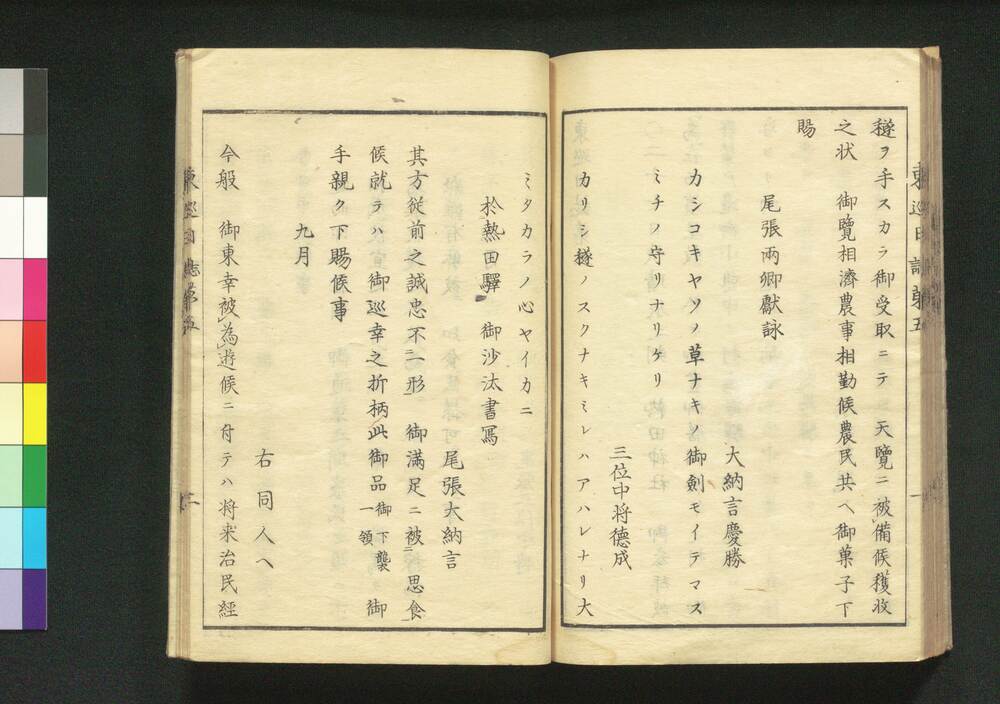 穟ヲ手スカラ御受取ニテ 天覽ニ被備候穫收
之状 御覽相濟農事相勤候農民共ヘ御菓子下
賜
尾張兩卿獻詠
大納言慶勝
カシコキヤツノ草ナキノ御劍モイテマス
ミチノ守リナリケリ
三位中将德成
カリシ穟ノスクナキミレハアハレナリ大
ミタカラノ心ヤイカニ
於熱田驛 御沙汰書寫
尾張大納言
其方従前之誠忠不一形 御満足ニ被思食
候就テハ御巡幸之折柄此御品御下襲一領 御
手親ク下賜候事
九月
右同人ヘ
今般 御東幸被為遊候ニ付テハ将来治民經
東巡日誌第五
一
東巡日誌第五